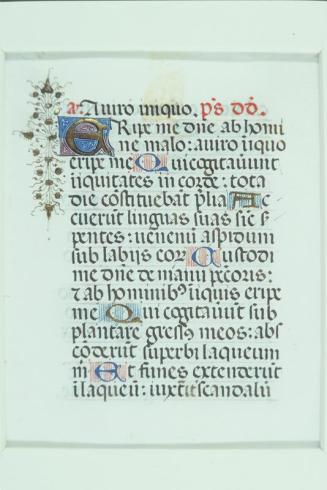 a. A uiro iniquo. p̄s dd̄.
Eripe me dn̄e ab homi
ne malo: a uiro iīquo
eripe me Qui cogitauūt
iīquitates in corde: tota
die cōstituebāt p̄lia Ac
cuerūt linguas suas sic s̄
pentes: uenenū aspidum
sub labijs eoꝝ Custodi
me dn̄e de manu peccōris:
⁊ ab hominibꝰ iīquis eripe
me Qui cogitauūt sub
plantare gressꝰ meos: abs
cōderūt superbi laqueum
m̄ Et funes extenderūt
ī laqueū: iuxta it̄ scandalū